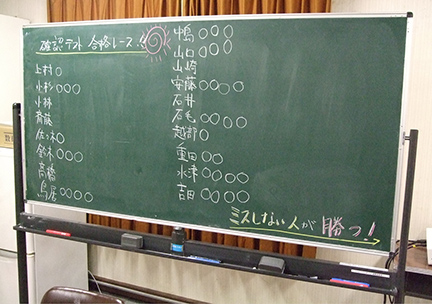 確認テスト 合格レース!!
上村 ○
小杉 ○○○
小林
斉藤
佐々木 ○
鈴木 ○○○
高橋
鳥居 ○○○○
中嶋 ○○○
山口 ○○○
山崎
安藤 ○○○○
石井
石毛 ○○○○
越部 ○
重田 ○○
水津 ○○○○
吉田 ○○○○
ミスしない人が 勝つ!